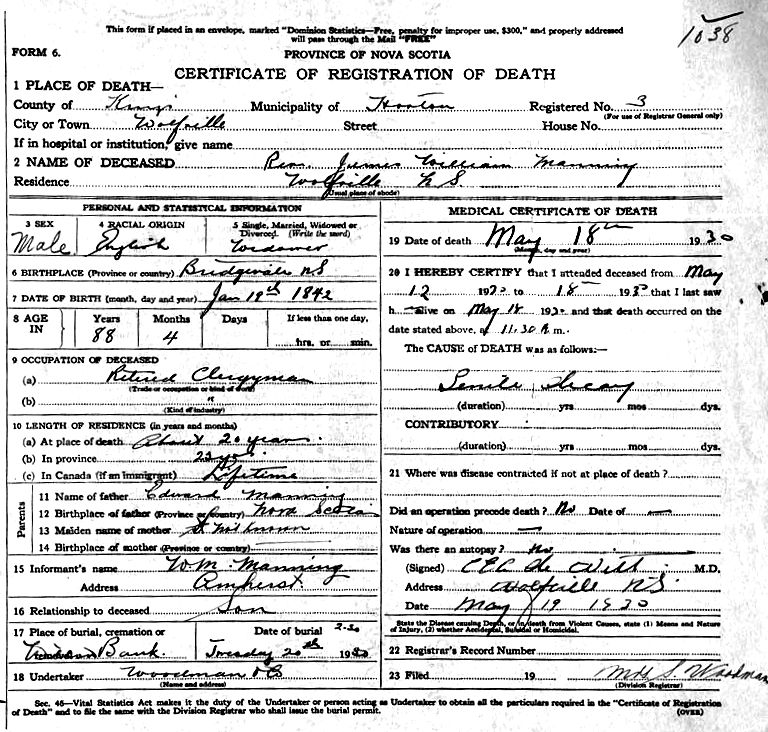 This form if placed in an envelope, marked "Dominion Statistics—Free, penalty for improper use, $300," and properly addressed
will pass through the Mail "FREE"
1038
FORM 6.
PROVINCE OF NOVA SCOTIA
CERTIFICATE OF REGISTRATION OF DEATH
1 PLACE OF DEATH—
County of Kings Municipality of Horton Registered No. 3
(For use of Registrar General only)
City or Town Wolfville Street House No.
If in hospital or institution, give name
2 NAME OF DECEASED Rev. James William Manning
Residence Wolfville N S.
(Usual place of abode)
PERSONAL AND STATISTICAL INFORMATION
3 SEX 4 RACIAL ORIGIN 5 Single, Married, Widowed or
Divorced. (Write the word)
Male English Widower
6 BIRTHPLACE (Province or country) NS
7 DATE OF BIRTH (month, day and year) Jan 19th 1842
8 AGE IN Years Months Days If less than one day,
88 4 hrs. or min.
9 OCCUPATION OF DECEASED
(a) Retired Clergyman
(Trade or occupation or kind of work)
(b) "
(Kind of industry)
10 LENGTH OF RESIDENCE (in years and months)
(a) At place of death About 20 years.
(b) In province
(c) In Canada (if an immigrant) Lifetime
Parents
11 Name of father Edward Manning
12 Birthplace of father (Province or country) Nova Scotia
13 Maiden name of mother
14 Birthplace of mother (Province or country)
15 Informant's name W.M. Manning
Address Amherst.
16 Relationship to deceased Son
17 Place of burial, cremation or Date of burial 2-30
Bank. Tuesday 20th 1930
18 Undertaker Woodman
(Name and address)
MEDICAL CERTIFICATE OF DEATH
19 Date of death May 18th 1930
(Month, day and year)
20 I HEREBY CERTIFY that I attended deceased from May
12 1930 to 18 1930 that I last saw
h alive on May 18 1930 and that death occurred on the
date stated above, at 11.30 A.m.
The CAUSE of DEATH was as follows:—
Senile Decay
(duration) yrs mos dys.
CONTRIBUTORY
(duration) yrs. mos dys.
21 Where was disease contracted if not at place of death?
Did an operation precede death? No Date of —
Nature of operation —
Was there an autopsy? No
(Signed) de Witt M.D.
Address Wolfville NS.
Date May 19 1930
State the Disease causing Death, or, in death from Violent Causes, state (1) Means and Nature
of Injury, (2) whether Accidental, Suicidal or Homicidal.
22 Registrar's Record Number
23 Filed 19 S. Woodman
(Division Registrar)
Sec. 46—Vital Statistics Act makes it the duty of the Undertaker or person acting as Undertaker to obtain all the particulars required in the "Certificate of Registration
of Death" and to file the same with the Division Registrar who shall issue the burial permit. (OVER)